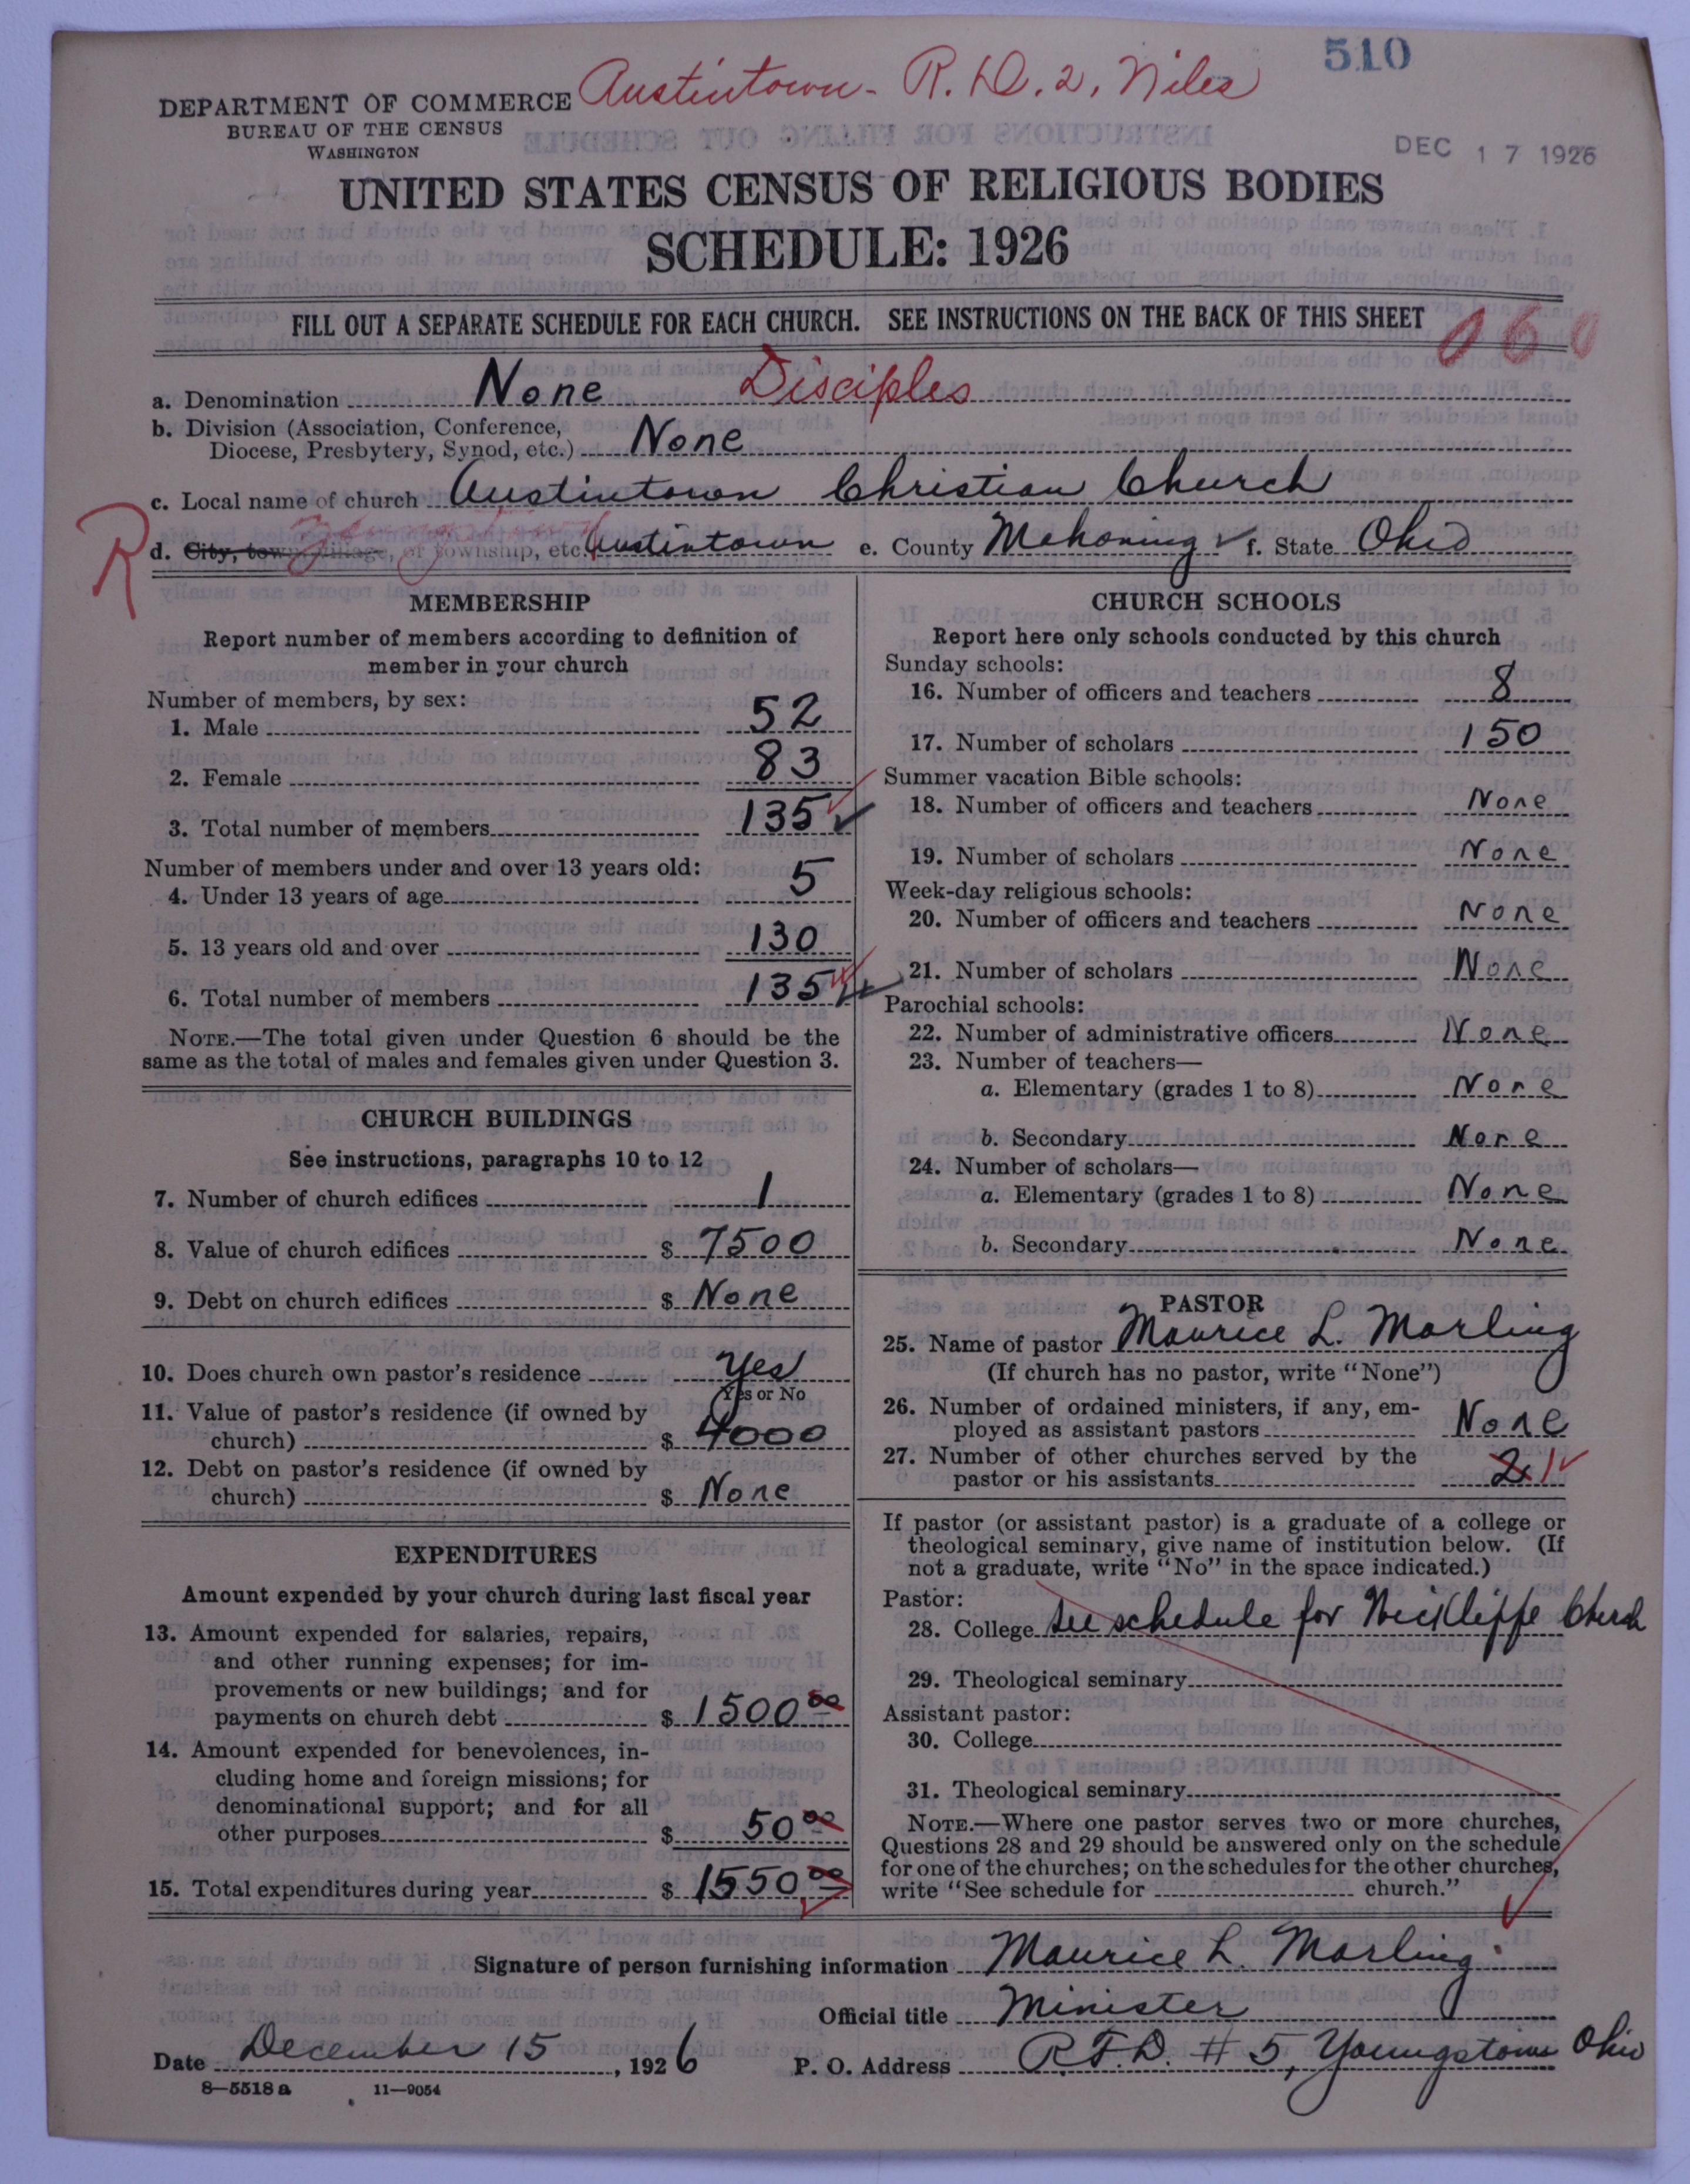 510
Austintown - R.D. 2, Niles
DEPARTMENT OF COMMERCE
BUREAU OF THE CENSUS
WASHINGTON
DEC 17 1926
UNITED STATES CENSUS OF RELIGIOUS BODIES
SCHEDULE: 1926
FILL OUT A SEPARATE SCHEDULE FOR EACH CHURCH. SEE INSTRUCTIONS ON THE BACK OF THIS SHEET
060
a. Denomination None Disciples
b. Division (Association, Conference,
Diocese, Presbytery, Synod, etc.) None
c. Local name of church Austintown Christian Church
R
d. City, town, village, or township, etc. Austintown e. County Mahoning f. State Ohio
MEMBERSHIP
Report number of members according to definition of
member in your church
Number of members, by sex:
1. Male 52
2. Female 83
3. Total number of members 135
Number of members under and over 13 years old:
4. Under 13 years of age 5
5. 13 years old and over 130
6. Total number of members 135
NOTE.—The total given under Question 6 should be the
same as the total of males and females given under Question 3.
CHURCH BUILDINGS
See instructions, paragraphs 10 to 12
7. Number of church edifices 1
8. Value of church edifices $ 7500
9. Debt on church edifices $ None
10. Does church own pastor's residence Yes
Yes or No
11. Value of pastor's residence (if owned by
church) $ 4000
12. Debt on pastor's residence (if owned by
church) $ None
EXPENDITURES
Amount expended by your church during last fiscal year
13. Amount expended for salaries, repairs,
and other running expenses; for im-
provements or new buildings; and for
payments on church debt $ 1500 00
14. Amount expended for benevolences, in-
cluding home and foreign missions; for
denominational support; and for all
other purposes $ 50 00
15. Total expenditures during year $ 1550 00
CHURCH SCHOOLS
Report here only schools conducted by this church
Sunday schools:
16. Number of officers and teachers 8
17. Number of scholars 150
Summer vacation Bible schools:
18. Number of officers and teachers None
19. Number of scholars None
Week-day religious schools:
20. Number of officers and teachers None
21. Number of scholars None
Parochial schools:
22. Number of administrative officers None
23. Number of teachers—
a. Elementary (grades 1 to 8) None
b. Secondary None
24. Number of scholars—
a. Elementary (grades 1 to 8) None
b. Secondary None
PASTOR
25. Name of pastor Maurice L. Marling
(If church has no pastor, write "None")
26. Number of ordained ministers, if any, em-
ployed as assistant pastors None
27. Number of other churches served by the
pastor or his assistants 2 1
If pastor (or assistant pastor) is a graduate of a college or
theological seminary, give name of institution below. (If
not a graduate, write "No" in the space indicated.)
Pastor:
28. College See schedule for Wickliffe Church
29. Theological seminary
Assistant pastor:
30. College
31. Theological seminary
NOTE.—Where one pastor serves two or more churches,
Questions 28 and 29 should be answered only on the schedule
for one of the churches; on the schedules for the other churches,
write "See schedule for church."
Signature of person furnishing information Maurice L. Marling
Official title Minister
Date December 15, 1926 P. O. Address R.F.D. # 5, Youngstown Ohio
8-5518a 11-9054